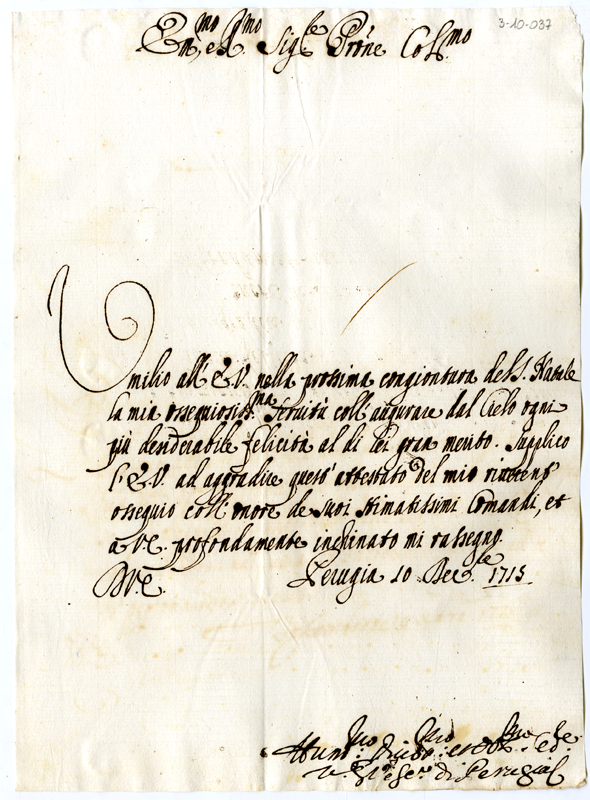 3-10-037
Em.mo e R.mo Sig.re Prõne Col.mo
Umilio all'E.V. nella prossima congiontura del S. Natale
la mia ossequiosiss.ma servitù coll'augurare dal Cielo ogni
più desiderabile felicità al di lei gran merito. Supplico
l'E.V. ad aggradire questo attestato del mio riverens.o
ossequio coll'onore de suoi stimatissimi Comandi, et
a V.E. profondamente inchinato mi rassegno.
D.V.E. Perugia 10 Dec.bre 1715
Hum.mo
di Perugia